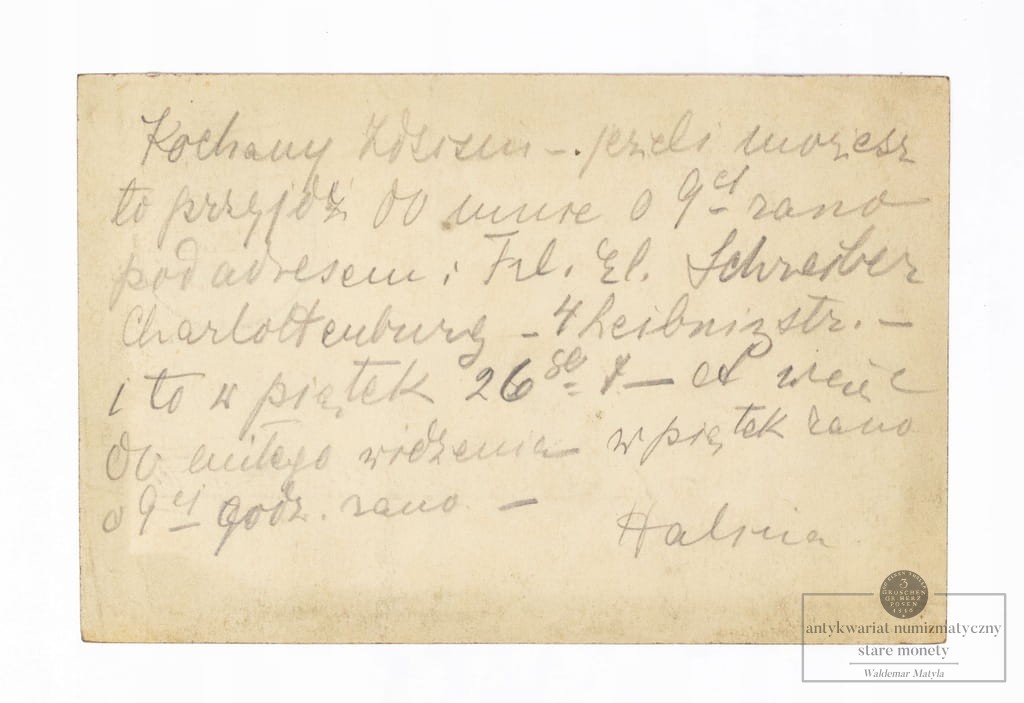 Kochany Zdzisiu – jeżeli możesz
to przyjdź do mnie o 9ej rano
pod adresem: Frl. El. Schreiber
Charlottenburg – 4 Leibnizstr. –
i to w piątek 26go – A więc
do miłego widzenia w piątek rano
o 9ej godz. rano. –
Halina
3
GROSCHEN
POSEN
antykwariat numizmatyczny
stare monety
Waldemar Matyla